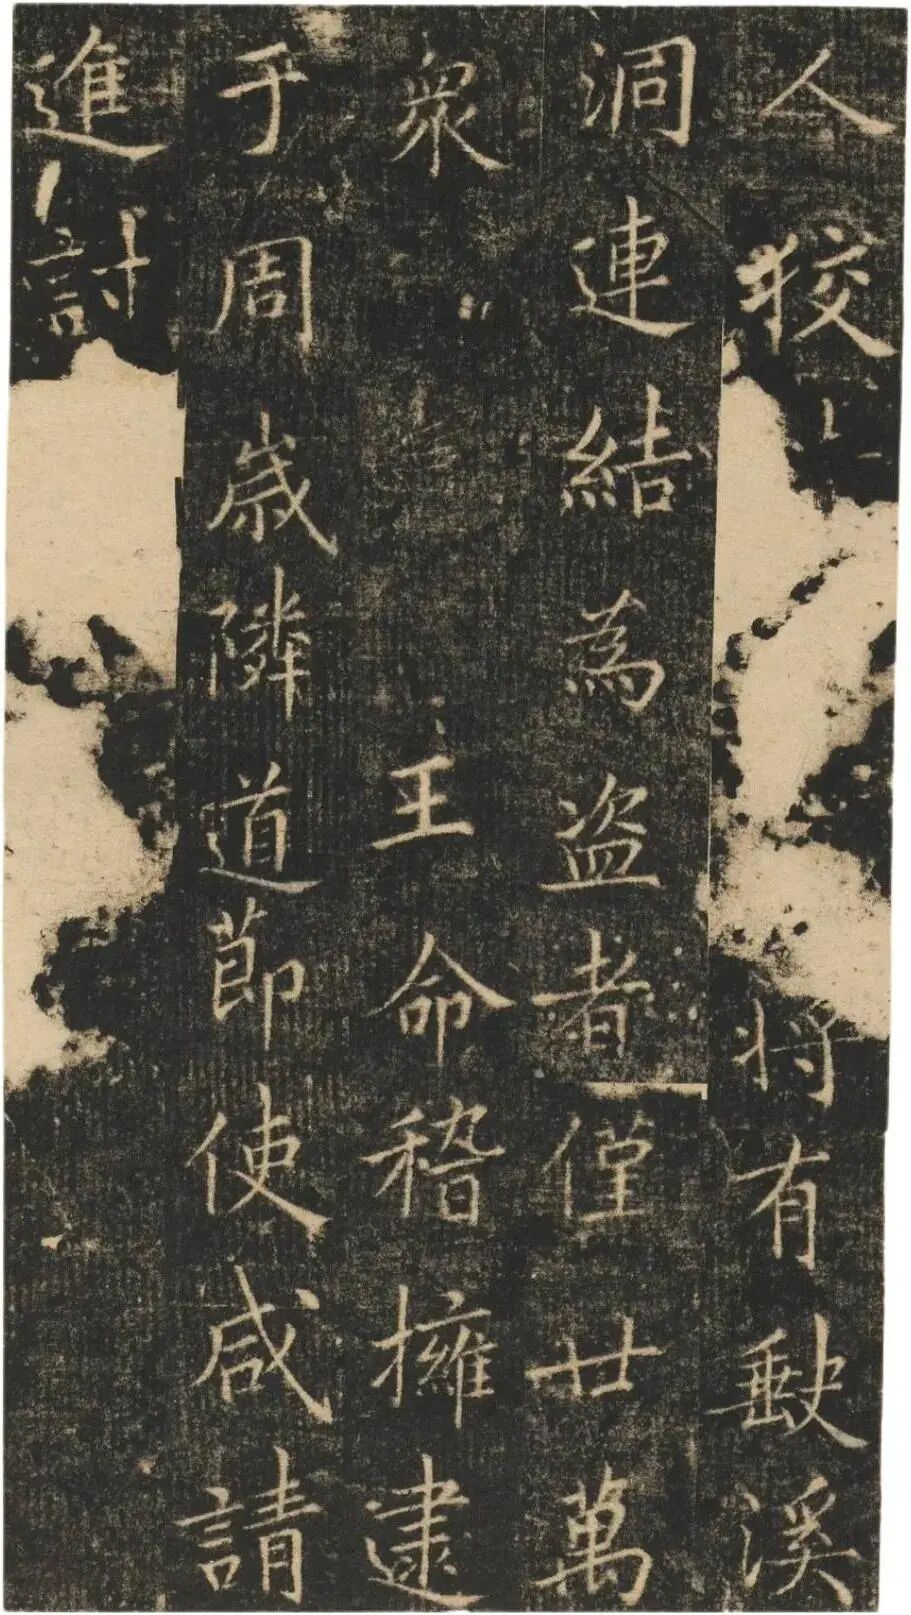 人狡將有數溪
洞連結為盗者僅廿萬
衆王命稽擁逮
于周歳隣道節使咸請
進討